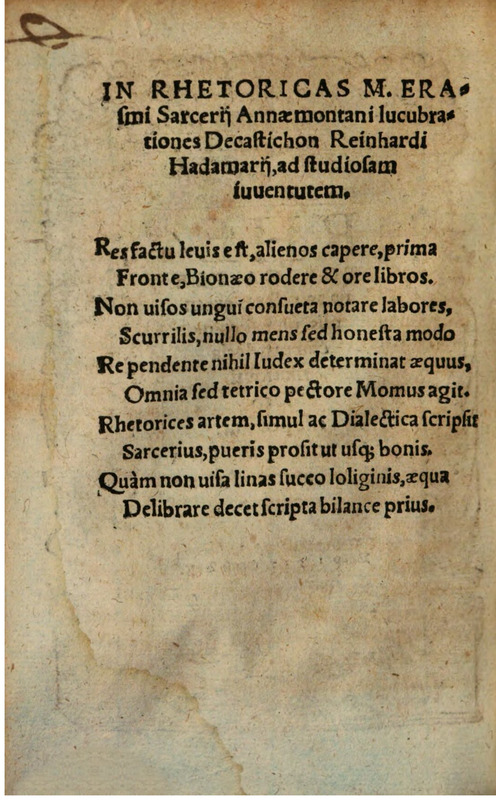 IN RHETORICAS M. ERA-
ſmi Sarcerĳ Annæmontani lucubra-
tiones Decaſtichon Reinhardi
Hadamarĳ, ad ſtudioſam
iuuentutem.
Res factu leuis eſt, alienos capere, prima
Fronte, Bionæo rodere & ore libros.
Non uiſos unguĩ conſueta notare labores,
Scurrilis, nullo mens ſed honeſta modo
Rependente nihil Iudex determinat æquus,
Omnia ſed tetrico pectore Momus agit.
Rhetorices artem, ſimul ac Dialectica ſcripſit
Sarcerius, pueris proſit ut uſq; bonis.
Quàm non uiſa linas ſucco loliginis, æqua
Delibrare decet ſcripta bilance prius.